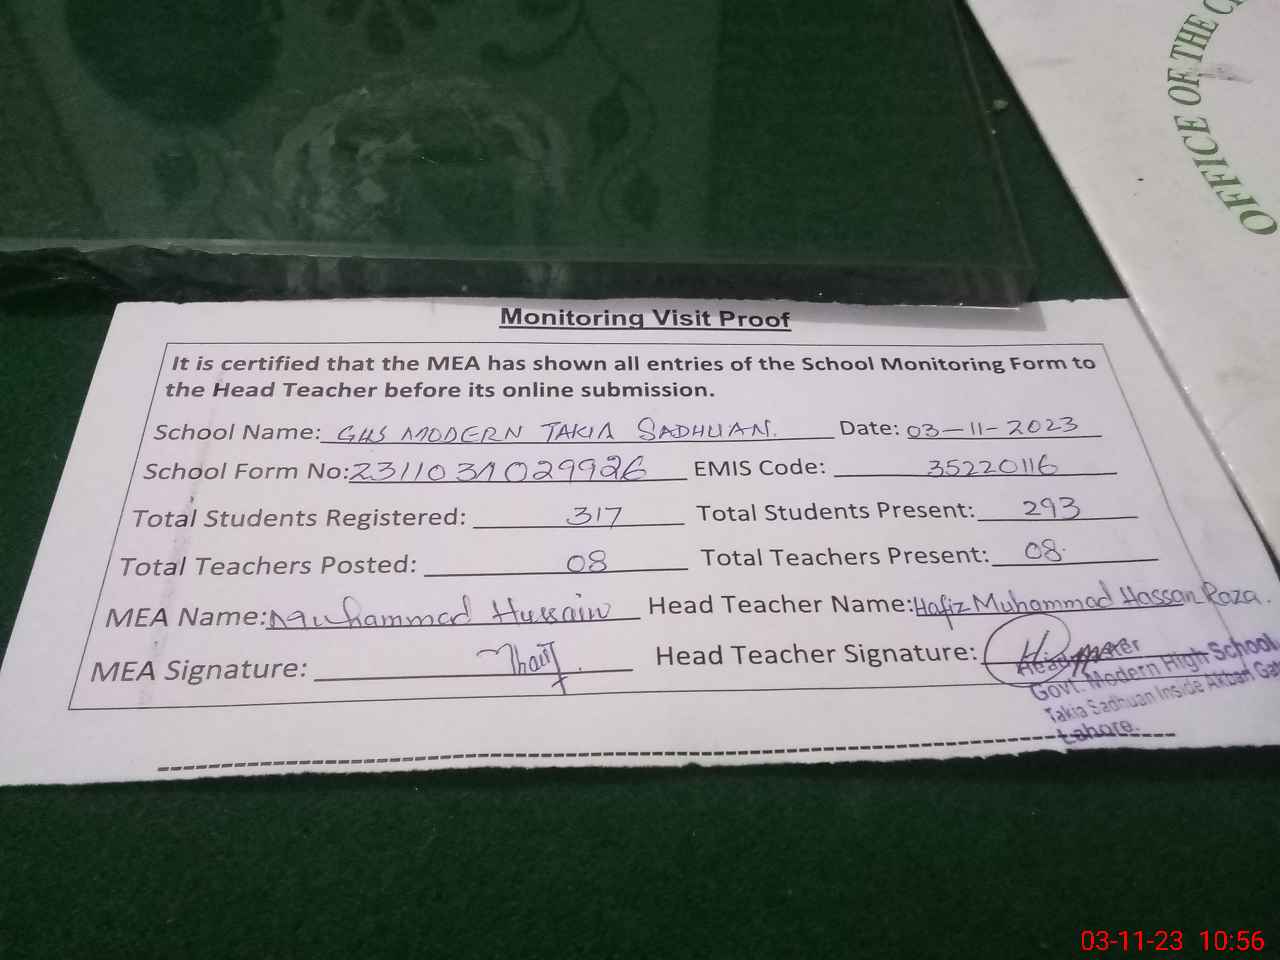 OFFICE OF THE
Monitoring Visit Proof
It is certified that the MEA has shown all entries of the School Monitoring Form to
the Head Teacher before its online submission.
School Name: GHS MODERN TAKIA SADHUAN. Date: 03-11-2023
School Form No: 2311031029926 EMIS Code: 35220116
Total Students Registered: 317 Total Students Present: 293
Total Teachers Posted: 08 Total Teachers Present: 08.
MEA Name: Muhammad Hussain Head Teacher Name: Hafiz Muhammad Hassan Raza.
MEA Signature: Head Teacher Signature:
Headmaster
Govt. Modern High School
Takia Sadhuan Inside Akbari Gat
Lahore.
03-11-23 10:56